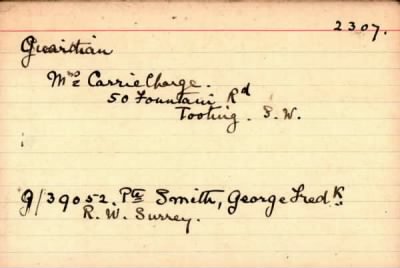 2307.
Guardian
Mrs Carrie Charge.
50 Fountain Rd
Tooting. S.W.
G/39052. Pte Smith, George Fredk.
R. W. Surrey.